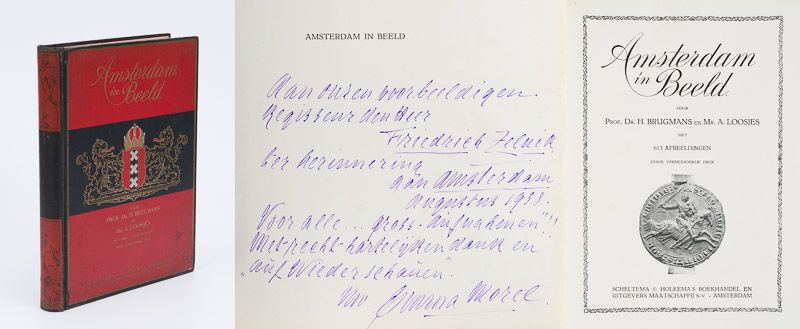 Amsterdam
in Beeld
DOOR
PROF. DR. H. BRUGMANS
EN
MR. A. LOOSJES
AMSTERDAM IN BEELD
Aan onzen voorbeeldigen
Regisseur den Heer
Friedrich Zelnik
ter herinnering
aan Amsterdam
Augustus 1933.
Voor alle ... "gross-aufnahmen"!!
Met recht hartelijken dank en
"Auf Wiederschauen".
Morel.
Amsterdam
in Beeld
DOOR
PROF. DR. H. BRUGMANS EN MR. A. LOOSJES
MET
613 AFBEELDINGEN
VERMEERDERDE DRUK
SCHELTEMA & HOLKEMA'S BOEKHANDEL EN
UITGEVERS MAATSCHAPPIJ N.V. - AMSTERDAM